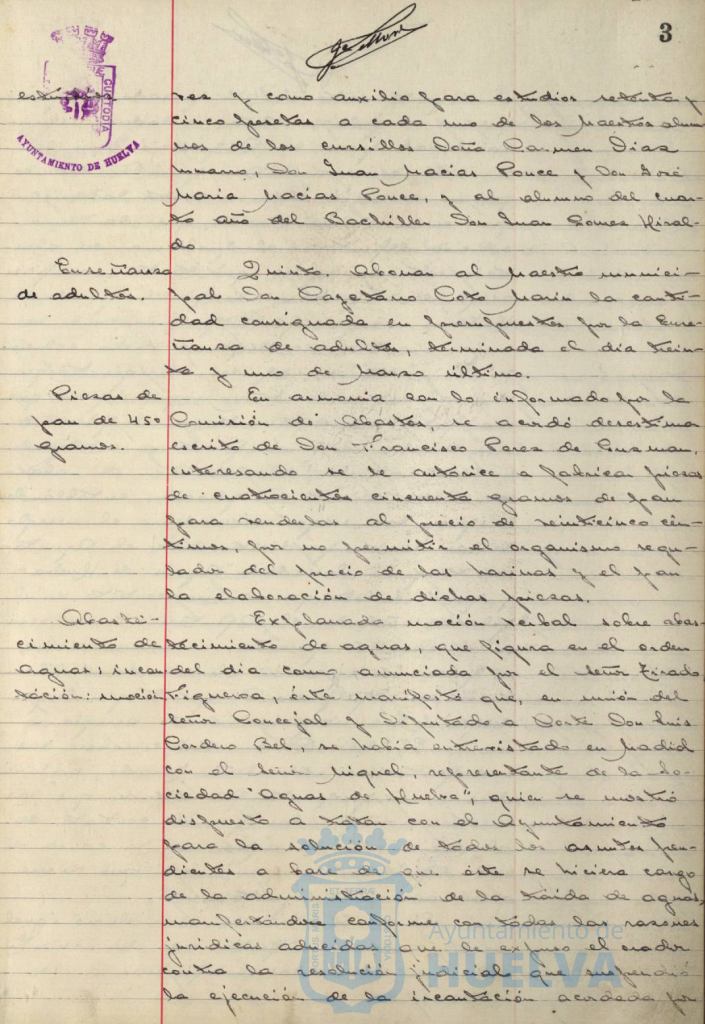 3
CUSTODIA
AYUNTAMIENTO DE HUELVA
res y como auxilio para estudios setenta y
cinco pesetas a cada uno de los Maestros alum
nos de los cursillos Doña Carmen Diaz
Don Juan Macias Ponce y Don José
Maria Macias Ponce, y al alumno del cuar-
to año del Bachiller Don Juan Gomez Hiral-
do
Enseñanza
de adultos.
Quinto. Abonar al Maestro munici-
pal Don Cayetano Coto Marin la canti-
dad consignada en presupuestos por la Ense-
ñanza de adultos, terminada el dia trein-
ta y uno de Marzo último.
Piezas de
pan de 450
gramos.
En armonia con lo informado por la
Comisión de Abastos, se acordó desestimar
escrito de Don Francisco Perez de Guzman,
interesando se le autorice a fabricar piezas
de cuatrocientos cincuenta gramos de pan
para venderlas al precio de veinticinco cén-
timos, por no permitir el organismo regu-
lador del precio de las harinas y el pan
la elaboración de dichas piezas.
Abaste-
cimiento de
aguas: incau
tación: moción
Explanada moción verbal sobre abas-
tecimiento de aguas, que figura en el orden
del dia como anunciada por el señor Tirado
Figueroa, éste manifestó que, en unión del
señor Concejal y Diputado a Corte Don Luis
Cordero Bel, se habia entrevistado en Madrid
con el señor Miquel, representante de la So-
ciedad "Aguas de Huelva", quien se mostró
dispuesto a tratar con el Ayuntamiento
para la solución de todos los asuntos pen-
dientes a base de que éste se hiciera cargo
de la administración de la traida de aguas,
manifestándose conforme con todas las razones
juridicas aducidas que le expuso el orador
contra la resolución judicial que suspendió
la ejecución de la incautación acordada por
Ayuntamiento de
HUELVA